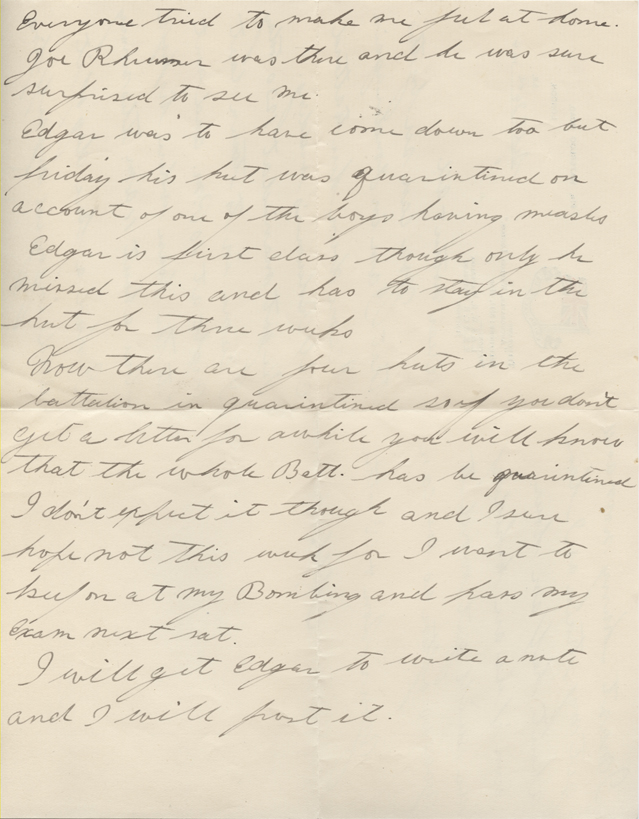 Everyone tried to make me feel at home.
Joe was there and he was sure
surprised to see me.
Edgar was to have come down too but
friday his hut was quarintined on
account of one of the boys having measles
Edgar is first class though only he
missed this and has to stay in the
hut for three weeks
Now there are four huts in the
battalion in quarintined so if you don't
get a letter for awhile you will know
that the whole Batt. has be quarintined
I don't expect it though and I sure
hope not this week for I want to
keep on at my Bombing and pass my
Exam next sat.
I will get Edgar to write a note
and I will post it.